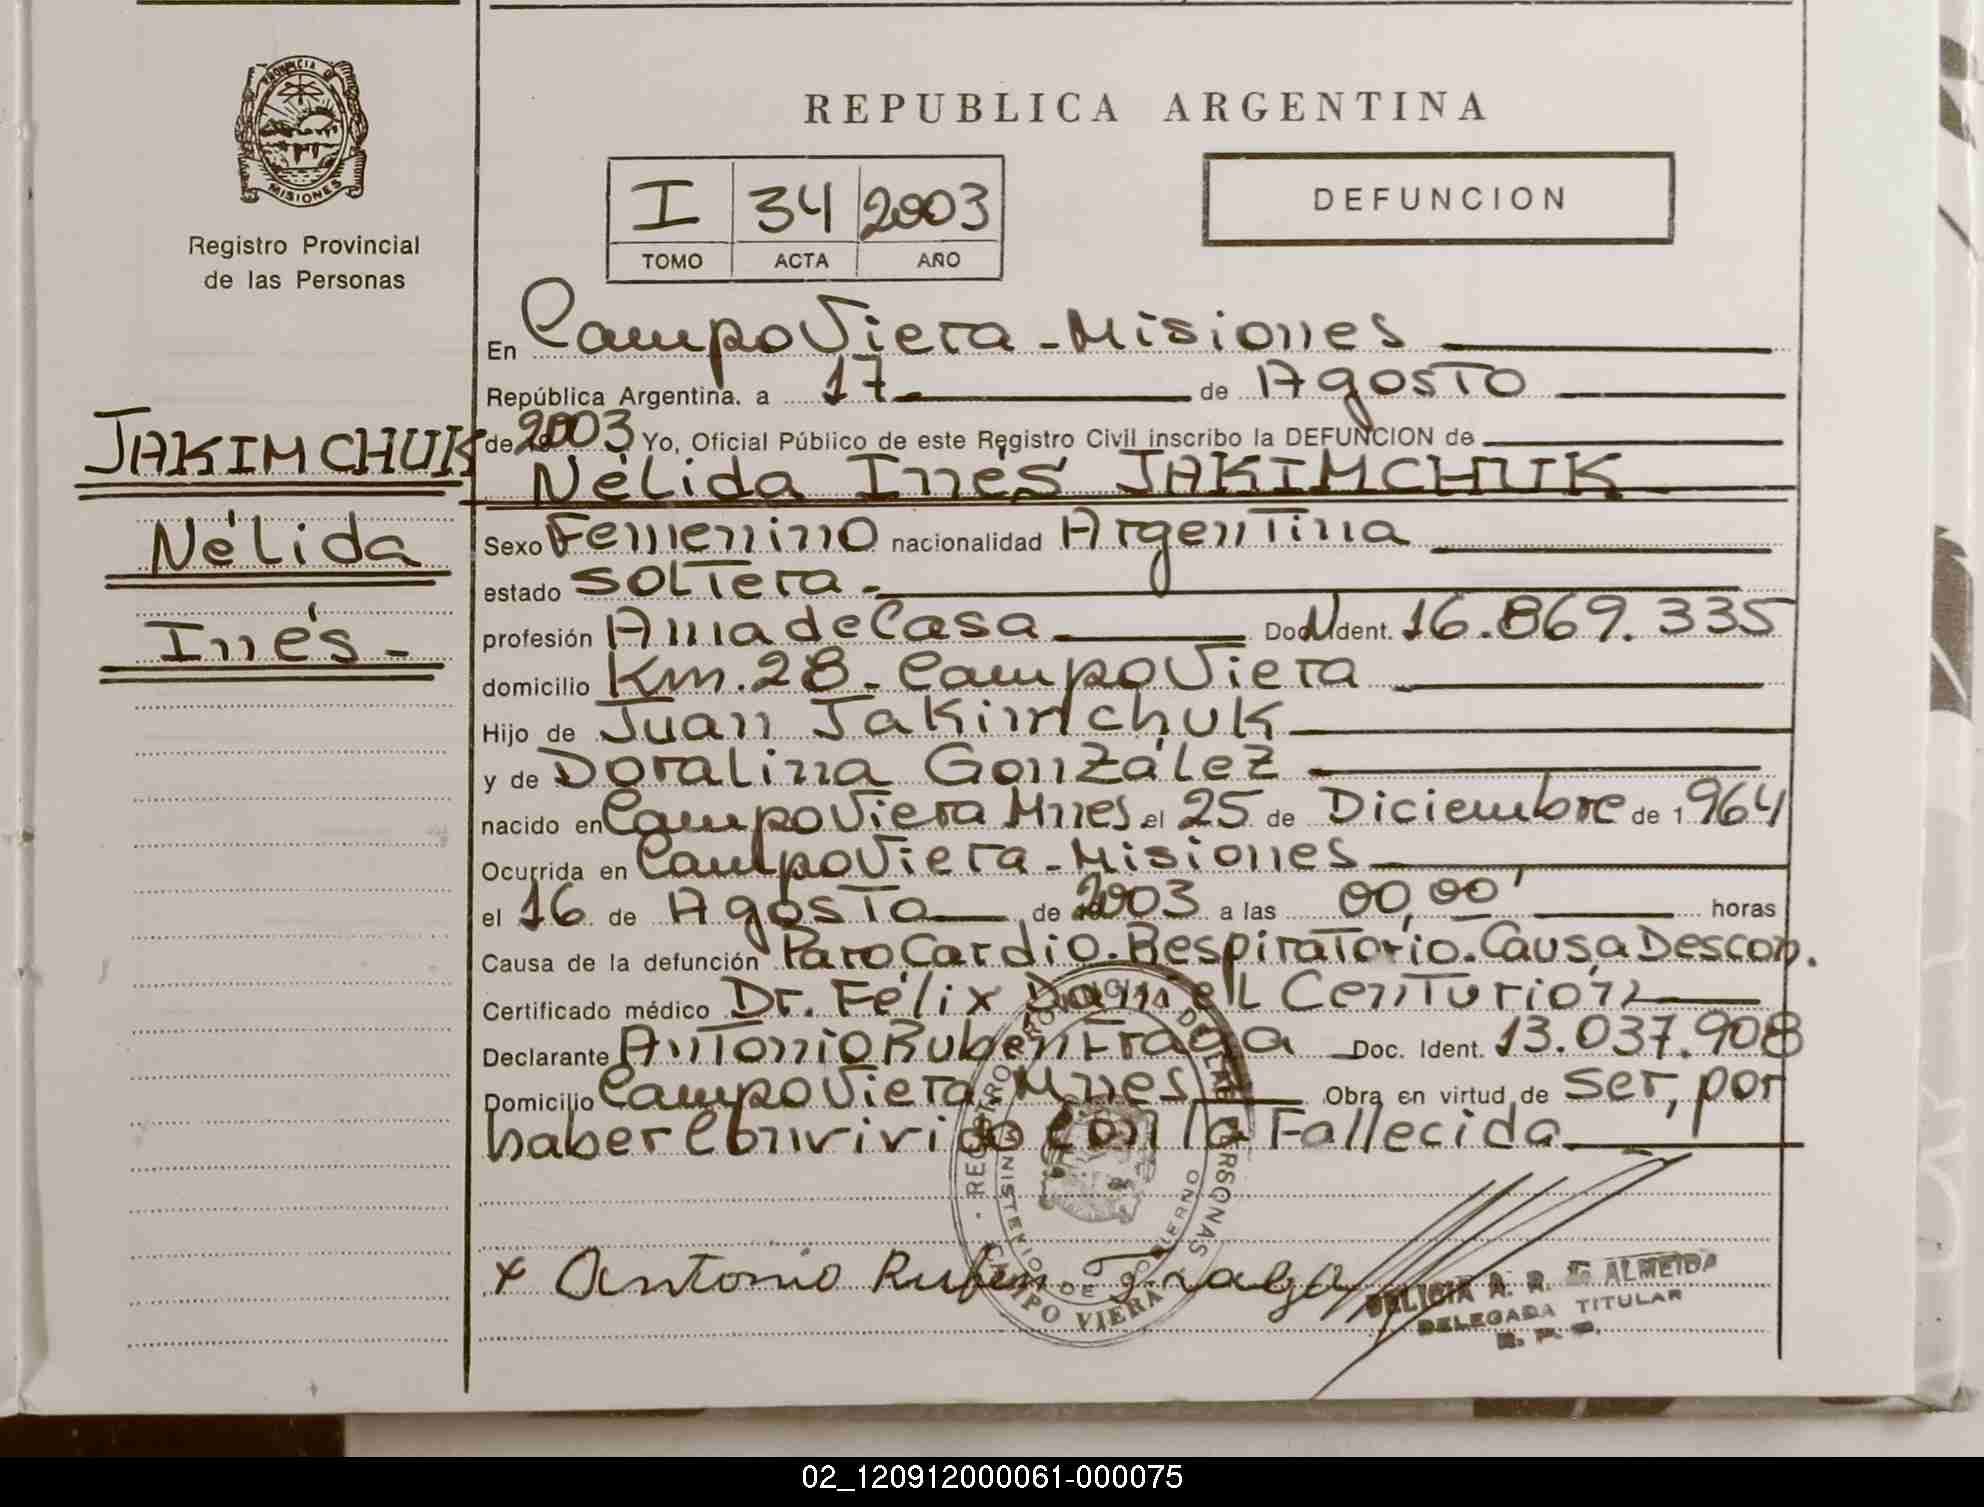 PROVINCIA DE
MISIONES
Registro Provincial
de las Personas
REPUBLICA ARGENTINA
I 34 2003
TOMO ACTA AÑO
DEFUNCION
En Campo Viera - Misiones
República Argentina, a 17 de Agosto
de 2003 Yo, Oficial Público de este Registro Civil inscribo la DEFUNCION de
Nélida Inés JAKIMCHUK
JAKIMCHUK
Nélida
Inés -
Sexo Femenino nacionalidad Argentina
estado Soltera -
profesión Ama de Casa Doc. Ident. 16.869.335
domicilio Km. 28 - Campo Viera
Hijo de Juan Jakimchuk
y de Doralina González
nacido en Campo Viera Mnes. el 25 de Diciembre de 1964
Ocurrida en Campo Viera - Misiones
el 16 de Agosto de 2003 a las 00,00' horas
Causa de la defunción Paro Cardio-Respiratorio. Causa Descon.
Certificado médico Dr. Félix Daniel Centurión
Declarante Antonio Ruben Fraga Doc. Ident. 13.037.908
Domicilio Campo Viera, Mnes Obra en virtud de ser, por
haber Convivido con la Fallecida
REGISTRO PROVINCIAL DE LAS PERSONAS
MINISTERIO DE GOBIERNO
CAMPO VIERA
x Antonio Ruben Fraga
DELICIA A. R. ALMEIDA
DELEGADA TITULAR
R. P. P.
02_120912000061-000075